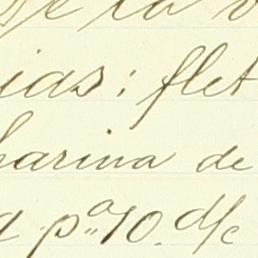 de la v
ias: flet
harina de
a pª 70. d/c